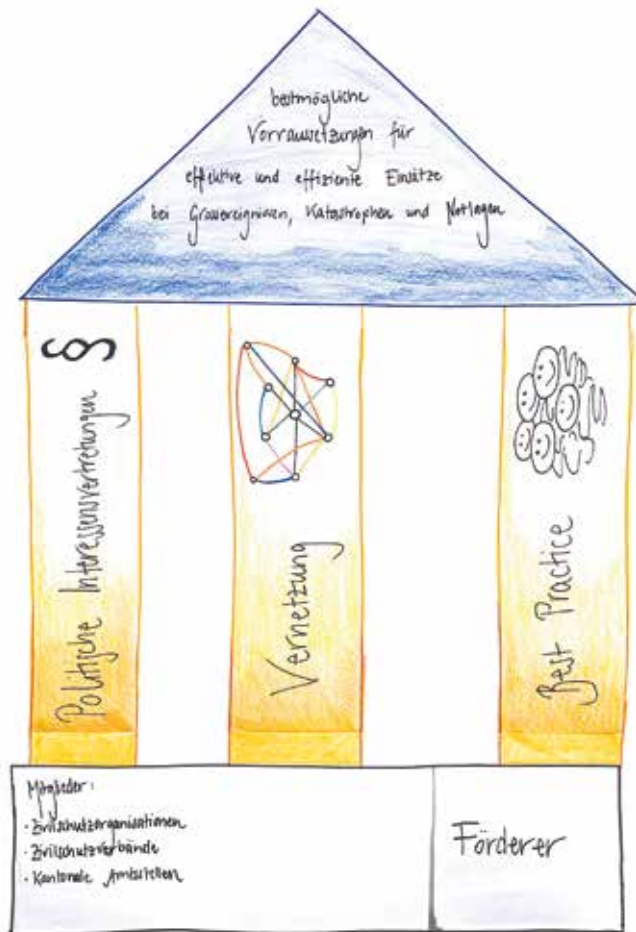 bestmögliche
Vorraussetzungen für
effektive und effiziente Einsätze
bei Grossereignissen, Katastrophen und Notlagen
§
Politische Interessensvertretungen
Vernetzung
Best Practice
Mitglieder:
· Zivilschutzorganisationen
· Zivilschutzverbände
· Kantonale Amtsstellen
Förderer